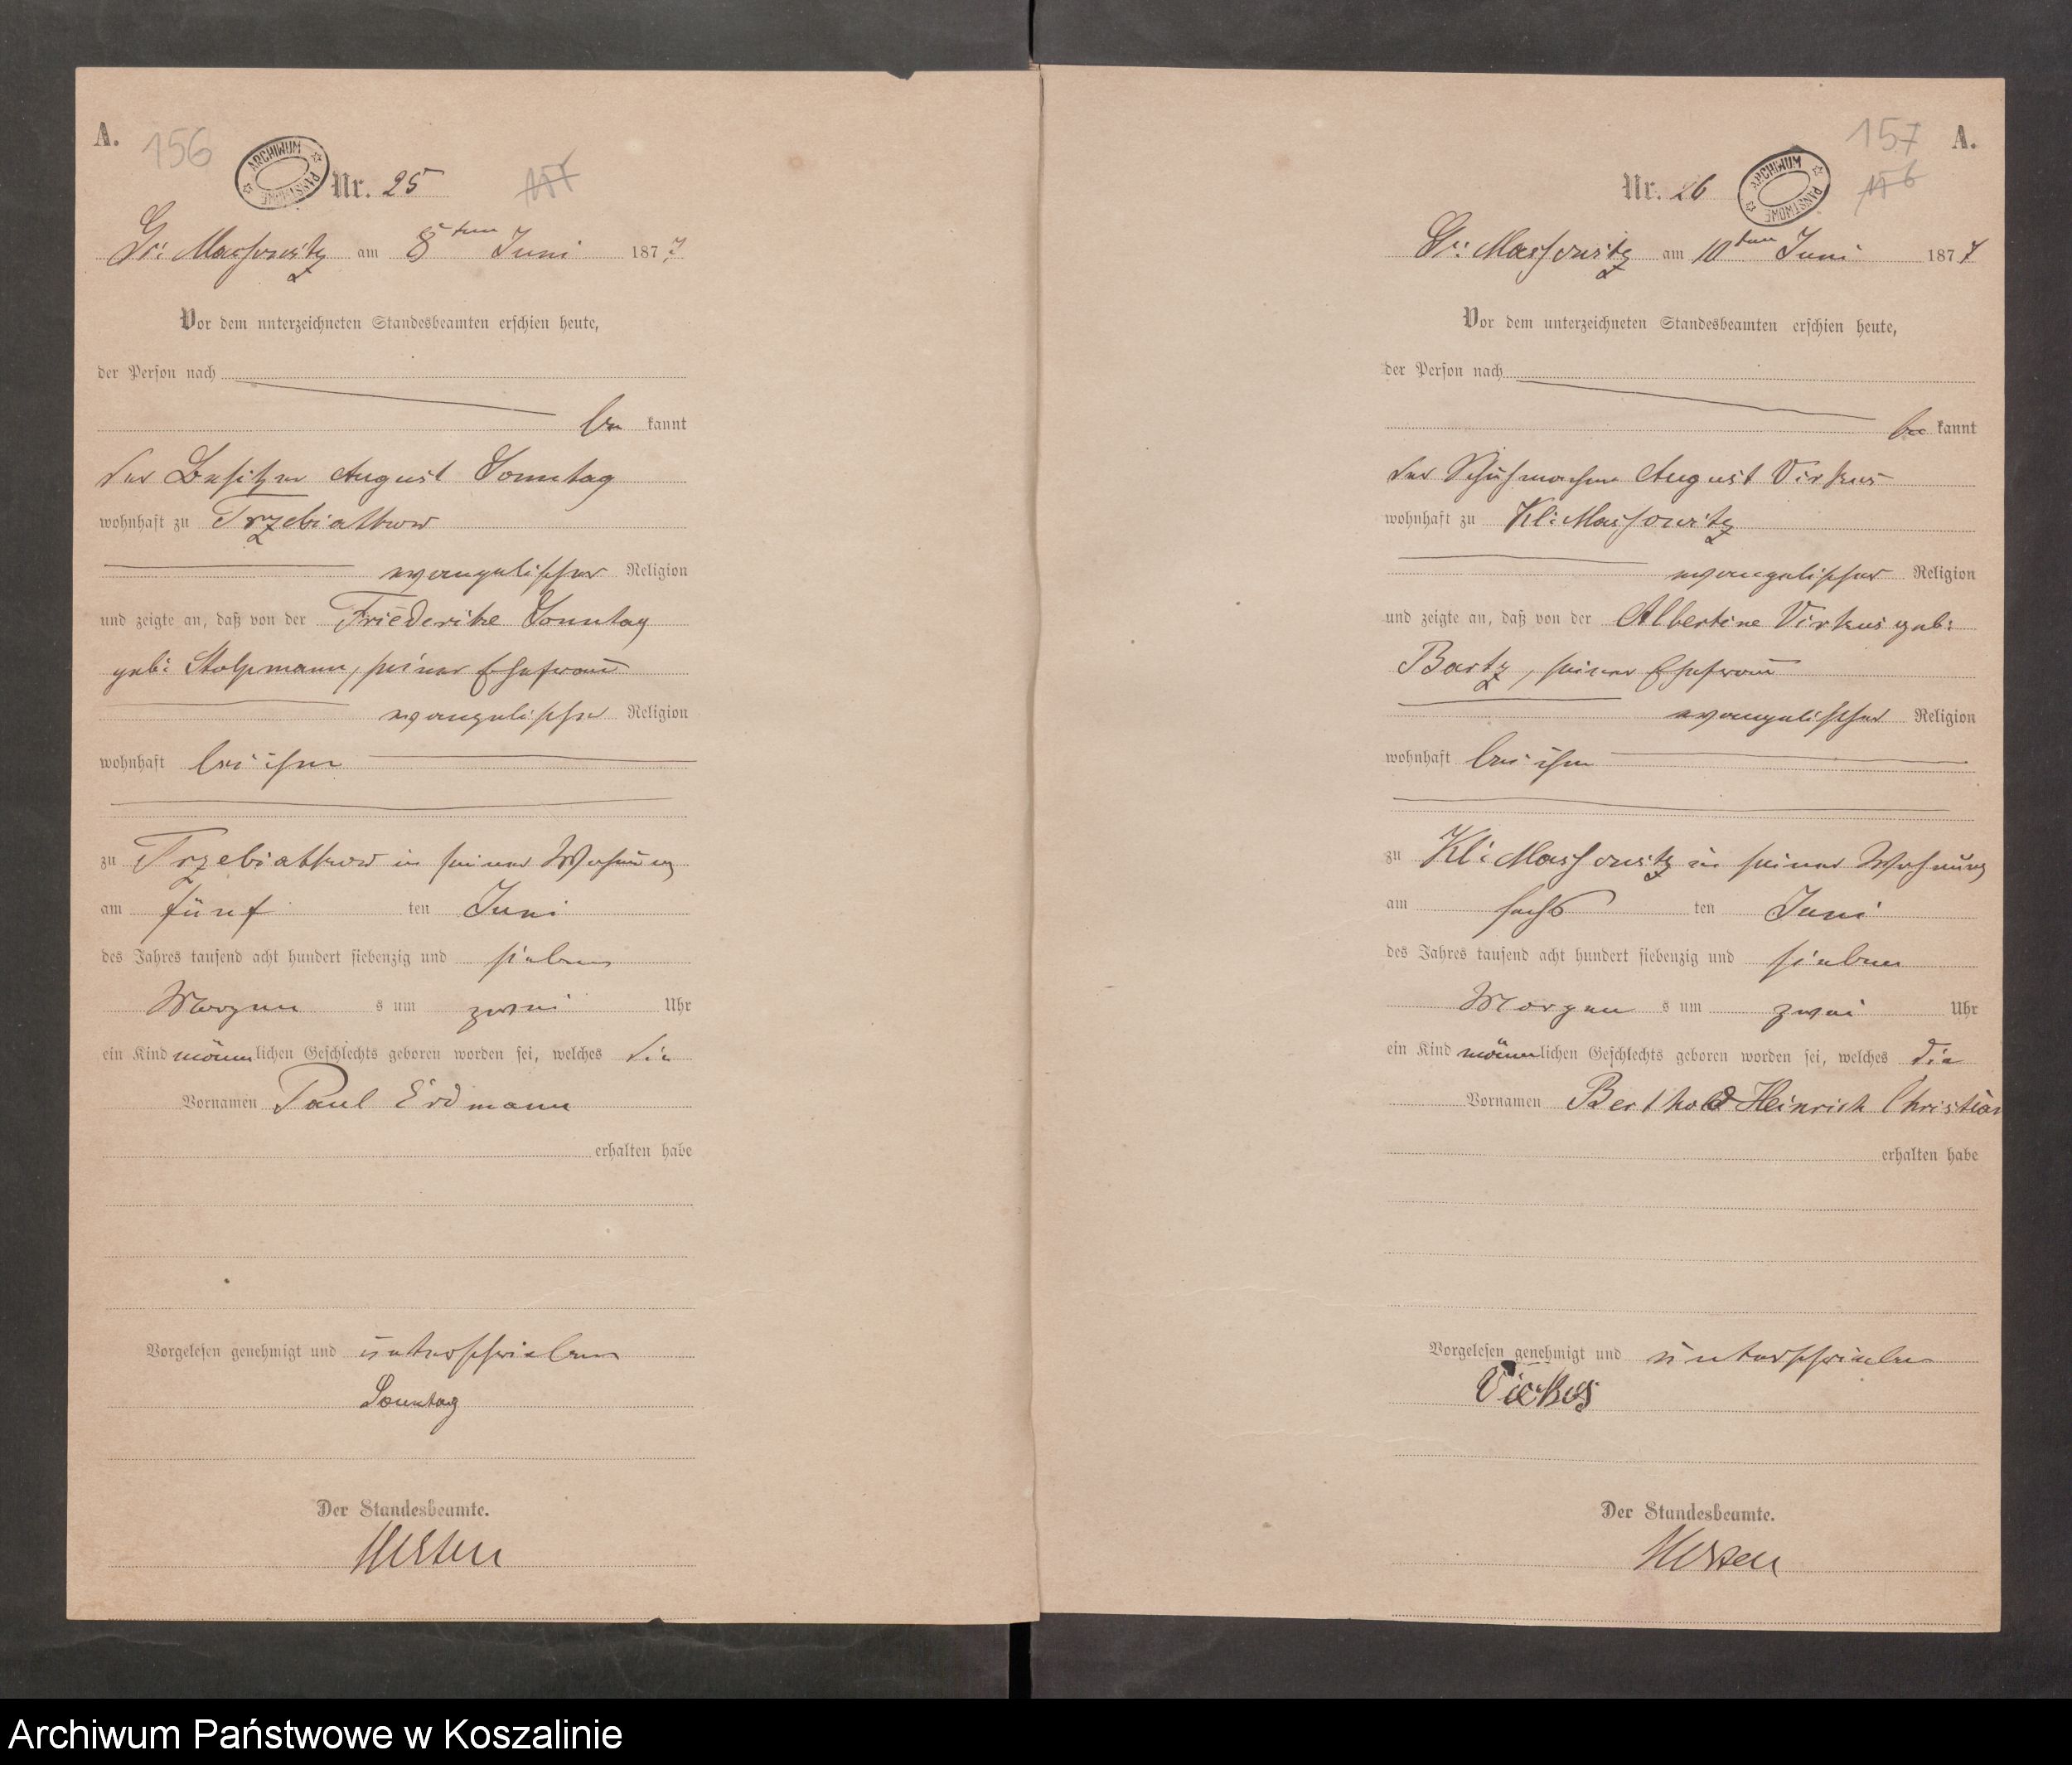 A.
156
ARCHIWUM PAŃSTWOWE
Nr. 25
Gr: Massowitz am 8ten Juni 1877
Vor dem unterzeichneten Standesbeamten erschien heute,
der Person nach
be kannt
der Besitzer August Sonntag
wohnhaft zu Trzebiatkow
evangelischer Religion
und zeigte an, daß von der Friederike Sonntag
geb: Stolpmann, seiner Ehefrau
evangelischer Religion
wohnhaft bei ihm
zu Trzebiatkow in seiner Wohnung
am fünf ten Juni
des Jahres tausend acht hundert siebenzig und sieben
Morgen s um zwei Uhr
ein Kind männlichen Geschlechts geboren worden sei, welches die
Vornamen Paul Erdmann
erhalten habe
Vorgelesen genehmigt und unterschrieben
Sonntag
Der Standesbeamte.
157
A.
156
ARCHIWUM PAŃSTWOWE
Nr. 26
Gr: Massowitz am 10ten Juni 1877
Vor dem unterzeichneten Standesbeamten erschien heute,
der Person nach
be kannt
der Schuhmacher August Virkus
wohnhaft zu Kl: Massowitz
evangelischer Religion
und zeigte an, daß von der Albertine Virkus geb:
Bartz, seiner Ehefrau
evangelischer Religion
wohnhaft bei ihm
zu Kl: Massowitz in seiner Wohnung
am sechs ten Juni
des Jahres tausend acht hundert siebenzig und sieben
Morgen s um zwei Uhr
ein Kind männlichen Geschlechts geboren worden sei, welches die
Vornamen Berthold Heinrich Christian
erhalten habe
Vorgelesen genehmigt und unterschrieben
Virkus
Der Standesbeamte.
Archiwum Państwowe w Koszalinie